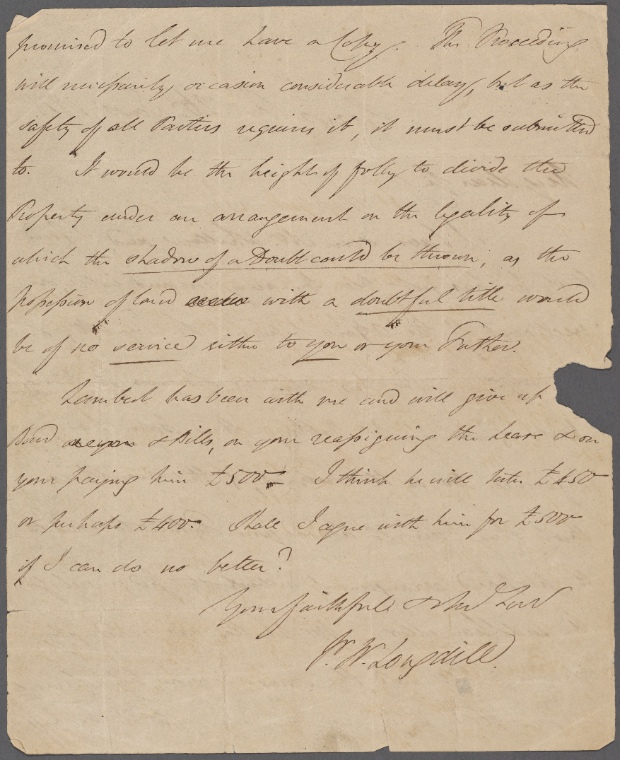 promised to let me have a Copy. This Proceeding
will necessarily occasion considerable delay, but as the
safety of all Parties requires it, it must be submitted
to. It would be the height of folly to divide the
Property under an arrangement on the legality of
which the shadow of a Doubt could be thrown, as the
Possession of land with a doubtful title would
be of no service either to you or your Father.
has been with me and will give up
Bond & Bills, on your reassigning the Lease & on
your paying him £500. I think he will take £450
or perhaps £400. Shall I agree with him for £500
if I can do no better?
Your faithful &
P. W. Longdill.